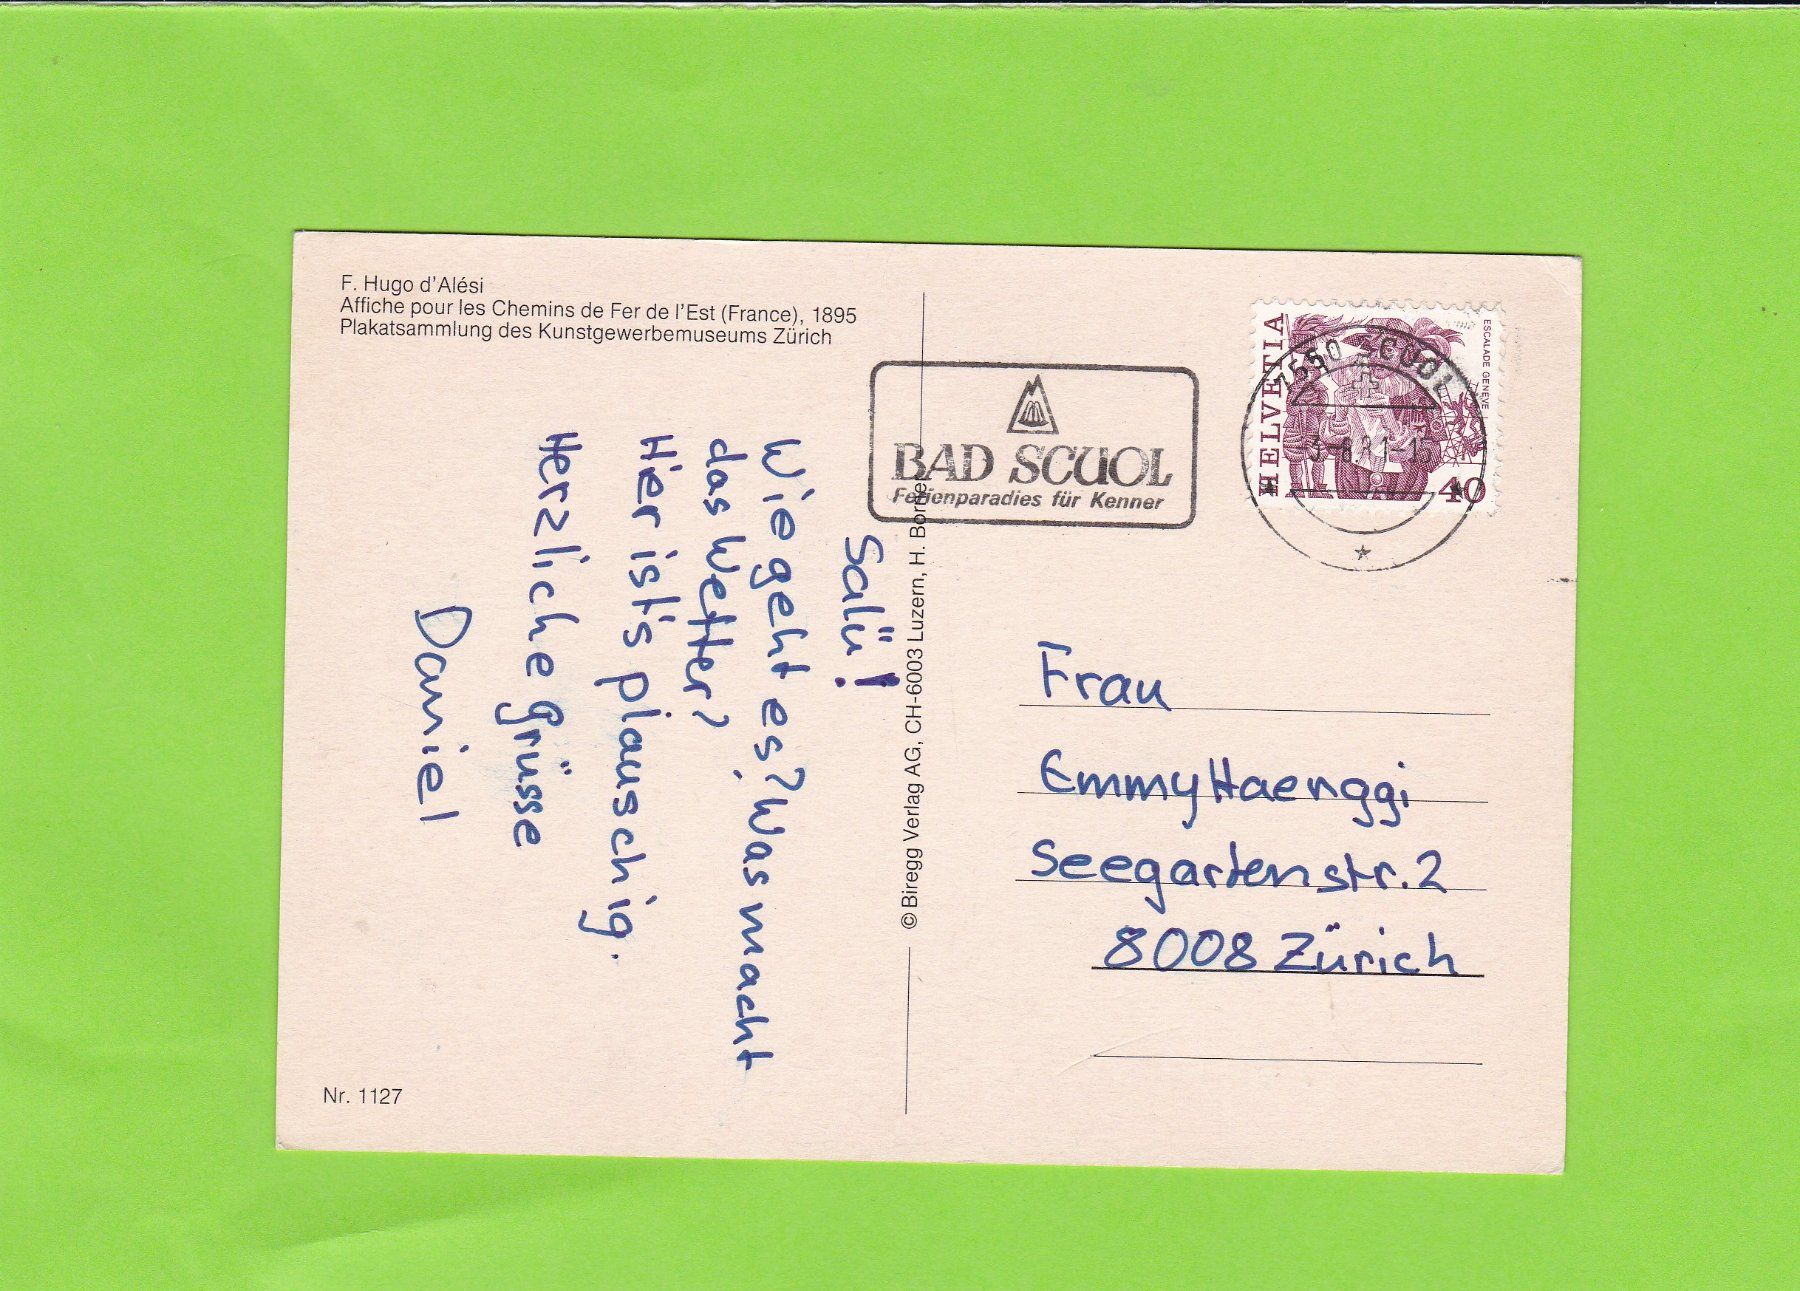 F. Hugo d'Alési
Affiche pour les Chemins de Fer de l'Est (France), 1895
Plakatsammlung des Kunstgewerbemuseums Zürich
BAD SCUOL
Ferienparadies für Kenner
HELVETIA
ESCALADE GENÈVE
40
7550 SCUOL
Salü!
Wie geht es? Was macht
das Wetter?
Hier ist's plauschig.
Herzliche Grüsse
Daniel
© Biregg Verlag AG, CH-6003 Luzern, H. Borner
Frau
Emmy Haenggi
Seegartenstr. 2
8008 Zürich
Nr. 1127